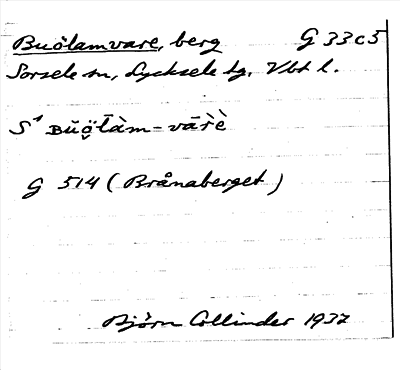 Buölamvare, berg G 33 c 5
Sorsele sn, Lycksele tg. Vbt l.
S¹ BŭŏlÀm-vāre
G 514 (Brånaberget)
Björn Collinder 1937